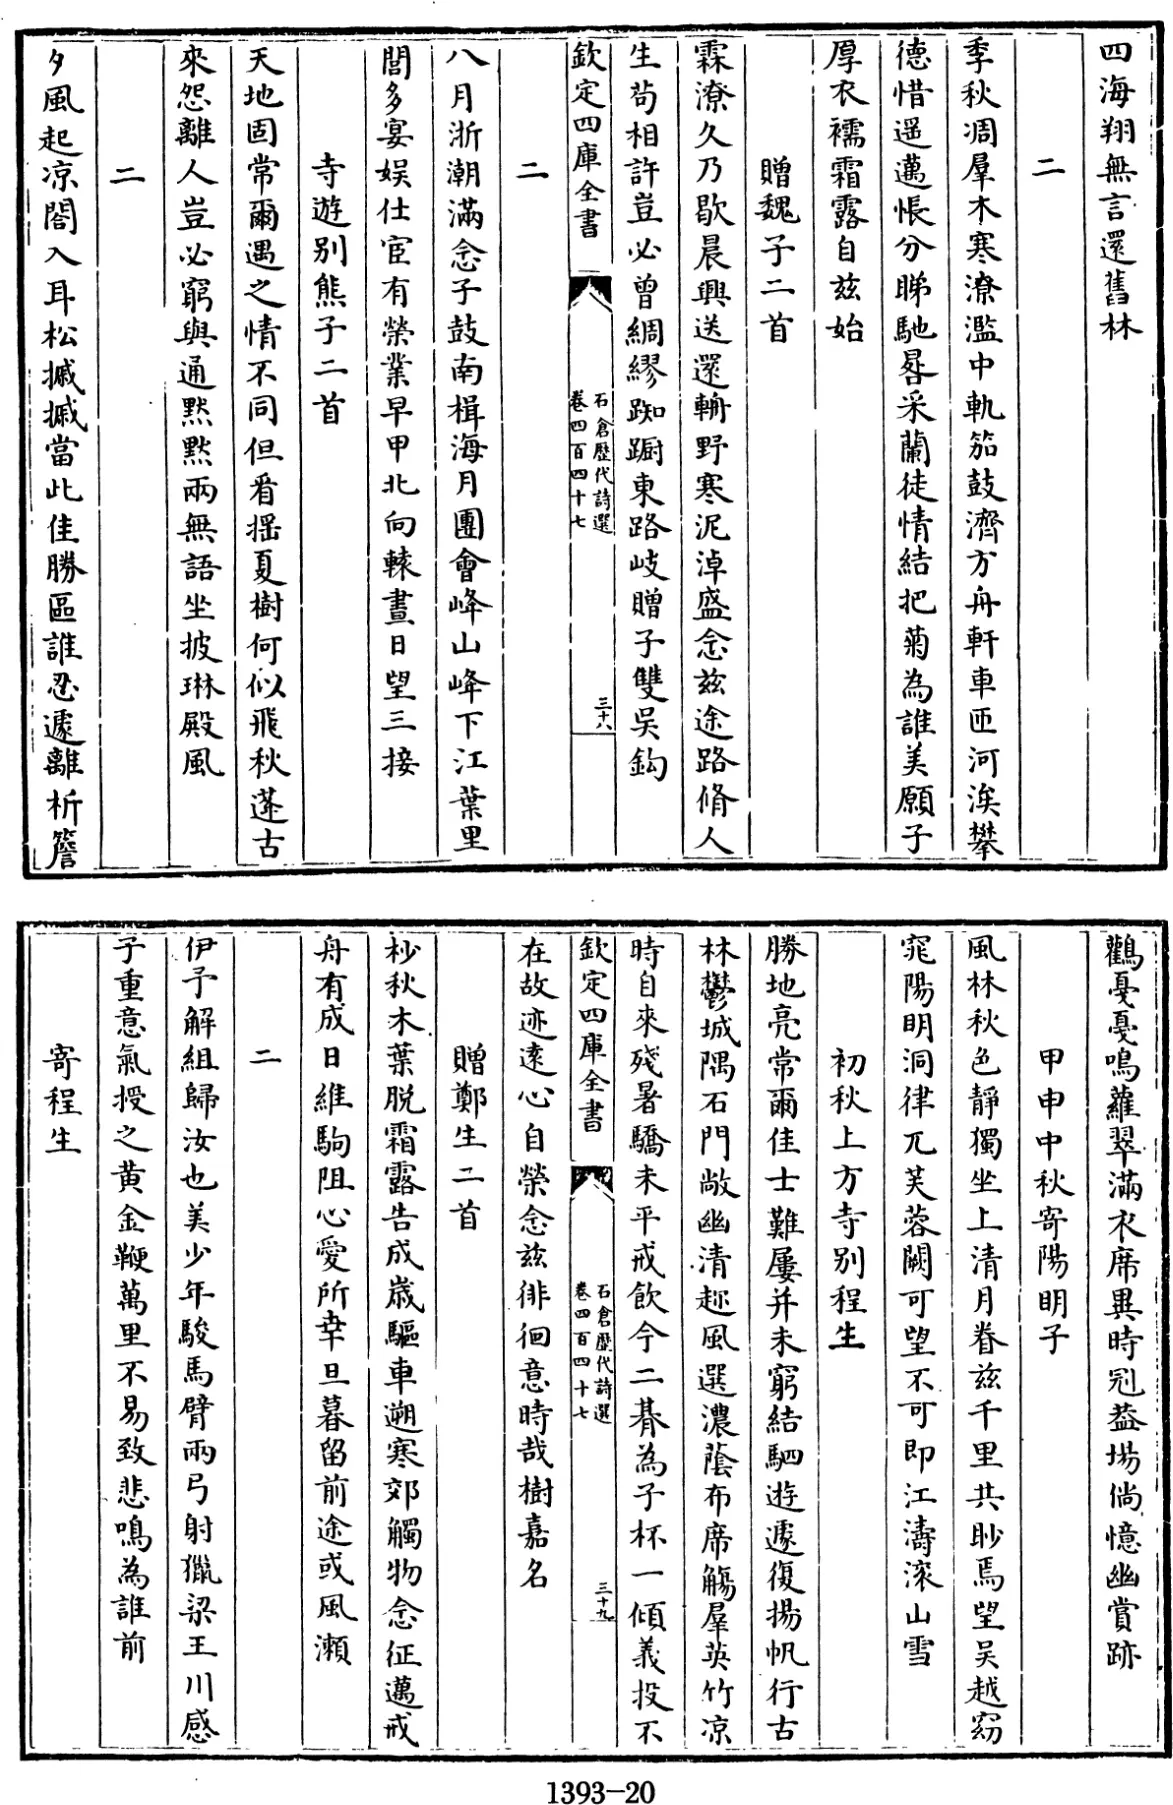 四海翔無言還舊林
二
季秋凋羣木寒潦濫中軌笳鼓濟方舟軒車匝河涘攀
德惜遥邁悵分睇馳晷采蘭徒情結把菊為誰美願子
厚衣襦霜露自兹始
贈魏子二首
霖潦久乃歇晨興送還輈野寒泥淖盛念兹途路脩人
生茍相許豈必曾綢繆踟蹰東路岐贈子雙吳鈎
欽定四庫全書
石倉歷代詩選
卷四百四十七
三十八
二
八月浙潮滿念子鼓南楫海月團會峰山峰下江葉里
閭多宴娯仕宦有榮業早甲北向轅晝日望三接
寺遊別熊子二首
天地固常爾遇之情不同但看揺夏樹何似飛秋蓬古
來怨離人豈必窮與通黙黙兩無語坐披琳殿風
二
夕風起凉閤入耳松摵摵當此佳勝區誰忍遽離析簷
鸛戛戛鳴蘿翠滿衣席異時冠葢場倘憶幽賞跡
甲申中秋寄陽明子
風林秋色靜獨坐上清月眷兹千里共眇焉望吳越窈
窕陽明洞律兀芙蓉闕可望不可即江濤滚山雪
初秋上方寺別程生
勝地亮常爾佳士難屢并未窮結駟遊遽復揚帆行古
林鬱城隅石門敞幽清趂風選濃蔭布席觴羣英竹凉
時自來殘暑驕未平戒飲今二朞為子杯一傾義投不
欽定四庫全書
石倉歷代詩選
卷四百四十七
三十九
在故迹逺心自榮念兹徘徊意時哉樹嘉名
贈鄭生二首
杪秋木葉脱霜露告成嵗驅車遡寒郊觸物念征邁戒
舟有成日維駒阻心愛所幸旦暮留前途或風瀬
二
伊予解組歸汝也美少年駿馬臂兩弓射獵梁王川感
子重意氣授之黄金鞭萬里不易致悲鳴為誰前
寄程生
1393-20